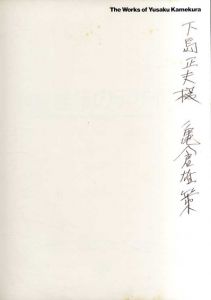 The Works of Yusaku Kamekura
下島正夫様
亀倉雄策